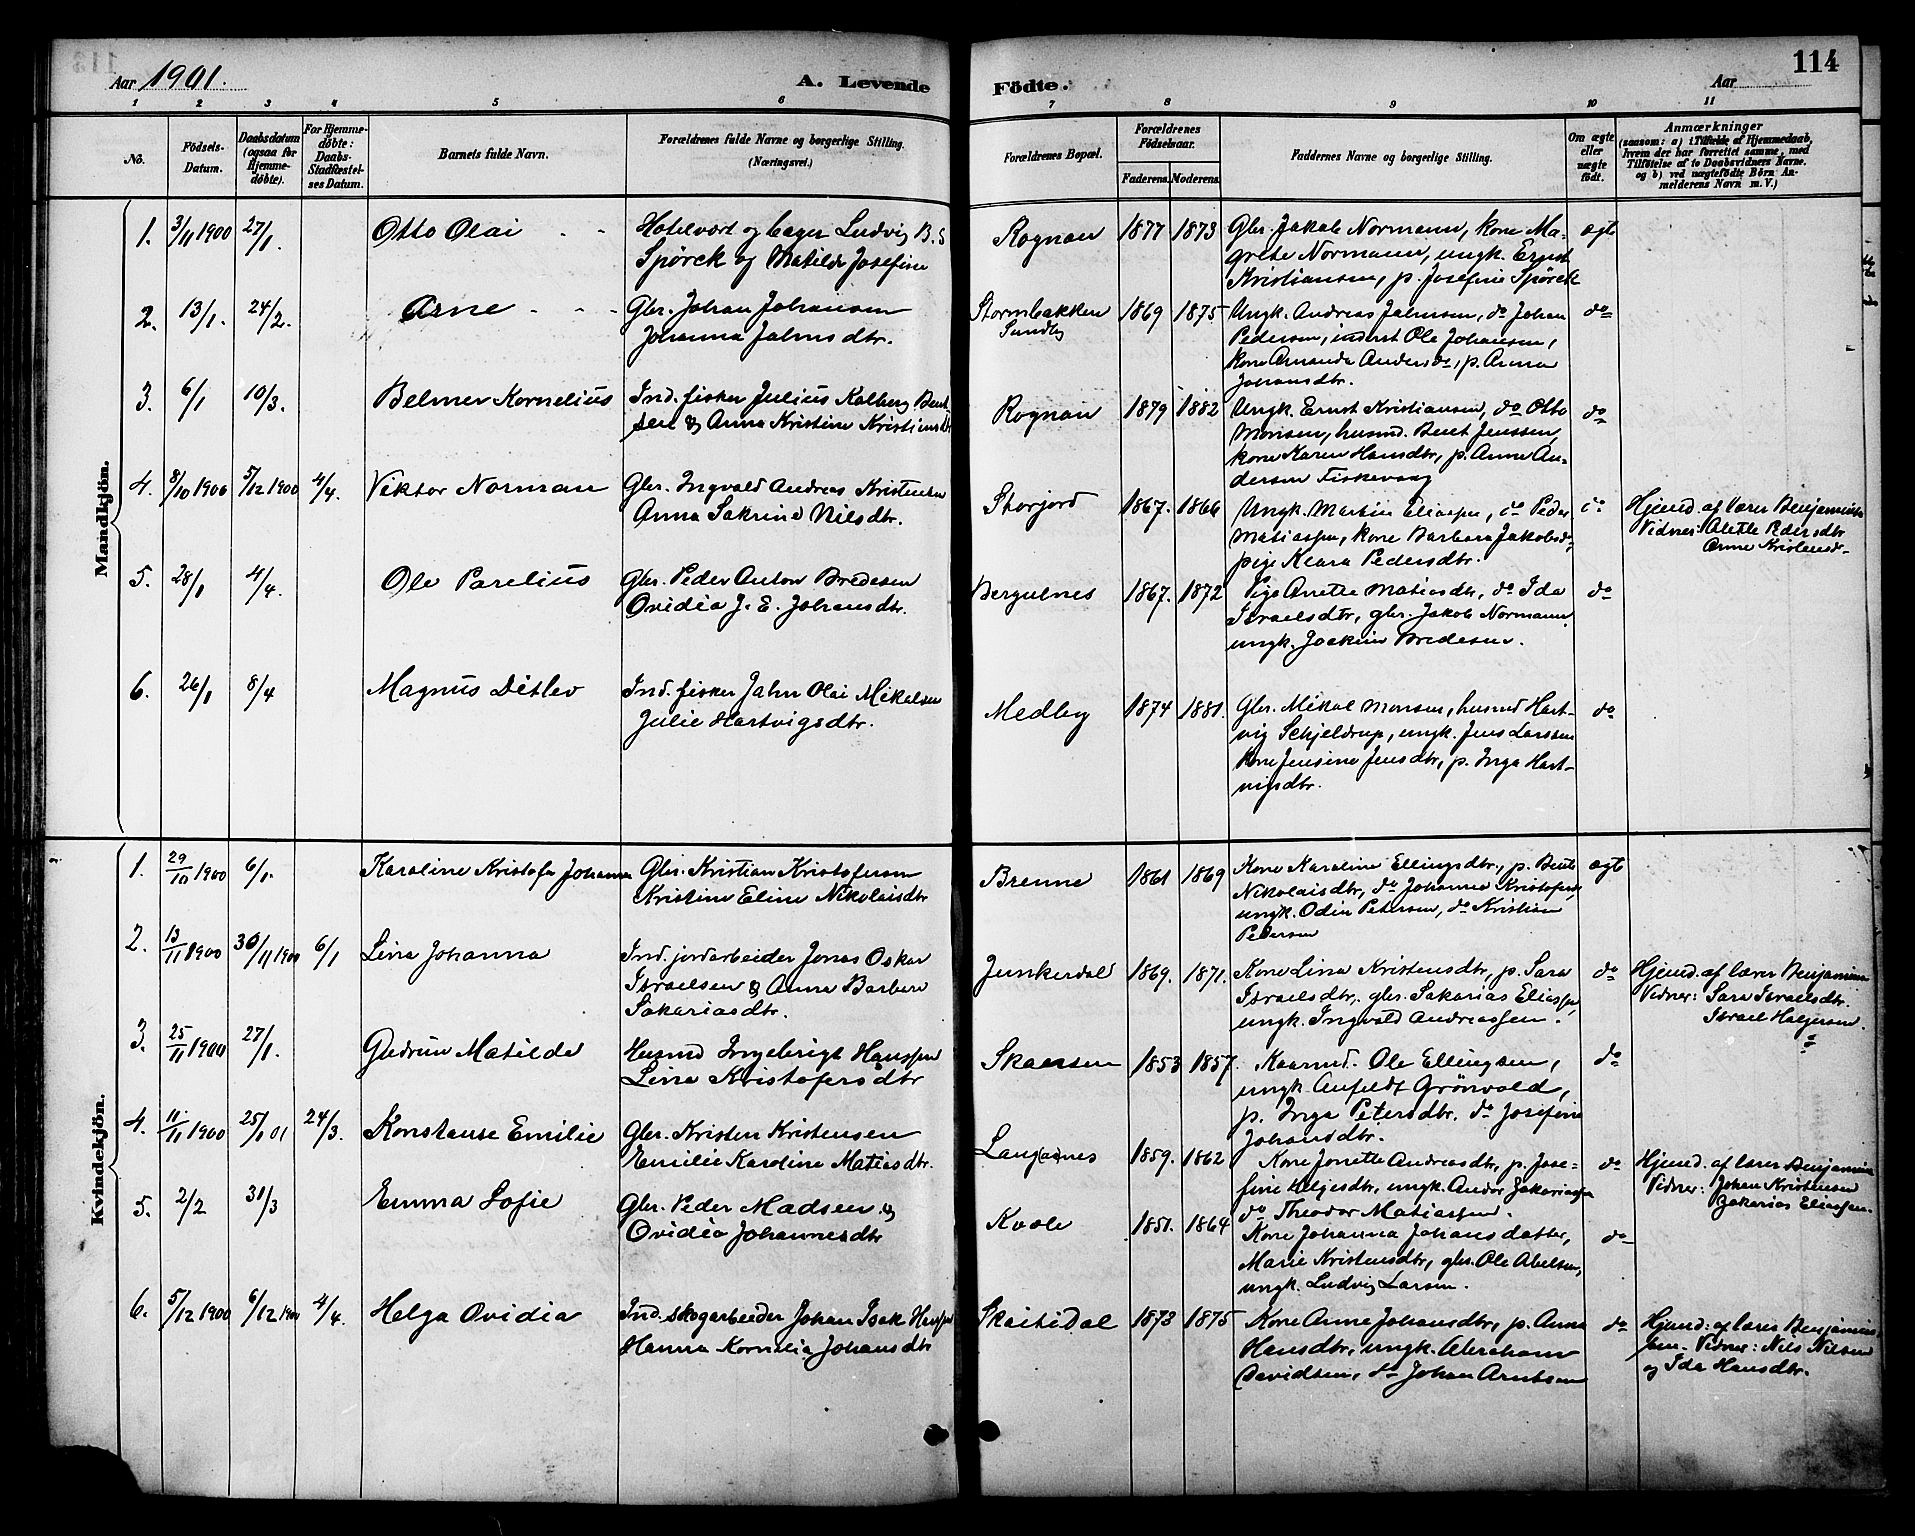 114
Aar 1901.
A. Levende Födte.
Aar
1 2 3 4 5 6 7 8 9 10 11
No.
Födsels-
Datum.
Daabsdatum
(ogsaa for
Hjemme-
döbte).
For Hjemme-
döbte:
Daabs-
Stadfæstel-
ses Datum.
Barnets fulde Navn.
Forældrenes fulde Navne og borgerlige Stilling.
(Næringsvei.)
Forældrenes Bopæl.
Forældrenes
Födselsaar.
Faderens. Moderens.
Faddernes Navne og borgerlige Stilling.
Om ægte
eller
uægte
födt.
Anmærkninger
(saasom: a) i Tilfælde af Hjemmedaab,
hvem der har forrettet samme, med
Tilföielse af to Daabsvidners Navne.
og b) ved uægtefödte Börn An-
melderens Navn m. V.)
Mandkjön.
1. 3/11 1900 27/1. Otto Olai
Hotelvært og bager Ludvig B. S
Spörck og Matilde Josefine
Rognan 1877 1873
Gbr. Jakob Normann, kone Ma-
grete Normann, ungk. Ernst
Kristiansen, p. Josefine Spörck
ægte
2. 13/1. 24/2. Arne
Gbr. Johan Johansen
Johanna Jalmsdtr.
Stormbakken
Sundby
1869 1875
Ungk. Andreas Jalmsen, do Johan
Pedersen, inderst Ole Johansen,
kone Amanda Andersdr, p. Anna
Johansdtr.
do
3. 6/1 10/3. Belmer Kornelius
Ind. fisker Julius Kolberg Bent-
sen & Anna Kristine Kristiansdtr
Rognan 1879 1882
Ungk. Ernst Kristiansen, do Otto
Monsen, husmd. Bent Jenssen,
kone Karen Hansdtr, p. Anna An-
dersen Fiskevaag
do
4. 8/10 1900 5/12 1900 4/4. Viktor Norman
Gbr. Ingvald Andreas Kristensen
Anna Sakrine Nilsdtr.
Storjord 1867. 1866
Ungk. Martin Eliassen, do Peder
Matiassen, kone Barbara Jakobsd-
pige Klara Pedersdtr.
do
Hjemd. af lærer Benjaminsen
Vidner: Aletle Pedersdtr
Anne Kristensd-
5. 28/1 4/4. Ole Parelius
Gbr. Peder Anton Bredesen
Ovidia J. E. Johansdtr.
Bergulnes 1867. 1872
Pige Anette Matiasdtr, do Ida
Israelsdtr, gbr. Jakob Normann
ungk. Joakim Bredesen.
do
6. 26/1 8/4 Magnus Ditlev
Ind. fisker Jahn Olai Mikalsen
Julie Hartvigsdtr.
Medby 1874 1881.
Gbr. Mikal Monsen, husmd Hart-
vig Schjeldrup, ungk. Jens Larssen
kone Jensine Jensdtr, p. Inga Hart-
vigsdtr.
do
Kvindekjön.
1. 29/10 1900 6/1. Karoline Kristofa Johanna
Gbr. Kristian Kristofersen
Kristine Eline Nikolaisdtr
Brenne 1861 1869
Kone Karoline Ellingsdtr, p. Berte
Nikolaisdtr, do Johanna Kristofersd,
ungk. Odin Petersen, do Kristian
Petersen
ægte
2. 13/11 1900 30/11 1900 6/1 Lina Johanna
Ind. jordarbeider Jonas Oskar
Israelsen & Anna Barbara
Sakariasdtr.
Junkerdal 1869. 1871.
Kone Lina Kristensdtr, p. Sara
Israelsdtr, gbr. Sakarias Eliassen,
ungk. Ingvald Andreassen.
do
Hjemd. af lærer Benjaminsen
Vidner: Sara Israelsdtr.
Israel Holgersen.
3. 25/11 1900 27/1. Gudrun Matilde
Husmd Ingebrigt Hanssen
Lina Kristofersdtr
Skansen 1853 1857.
Kaarmd. Ole Ellingsen,
ungk. Anfeldt Grönvold,
p. Inga Petersdtr. do Josefine
Johansdtr.
do
4. 11/11 1900 25/1 01 24/3. Konstanse Emilie
Gbr. Kristen Kristensen
Emilie Karoline Matiasdtr.
Langasnes 1859. 1862
Kone Jonette Andreasdtr, p. Jose-
fine Heljesdtr, ungk. Andor Zakariassen
do Theodor Matiassen.
do
Hjemd. af lærer Benjaminsen
Vidner: Johan Kristensen
Zakarias Eliassen.
5. 2/2 31/3 Emma Sofie
Gbr. Peder Madsen &
Ovidia Johannesdtr
Kvale 1851. 1864
Kone Johanna Johansdatter,
Marie Kristensdtr, gbr. Ole Abelsen,
ungk. Ludvig Larsen.
do
6. 5/12 1900 6/12 1900 4/4. Helga Ovidia
Ind. skogarbeider Johan Isak Hanssen
Hanna Kornelia Johansdtr
Skaitidal 1873 1875
Kone Anne Johansdtr, p. Anna
Hansdtr, ungk. Abraham
Davidsen, do Johan Arntsen
do
Hjemd. af lærer Benjamin-
sen. Vidner: Nils Nilsen
og Ida Hansdtr.